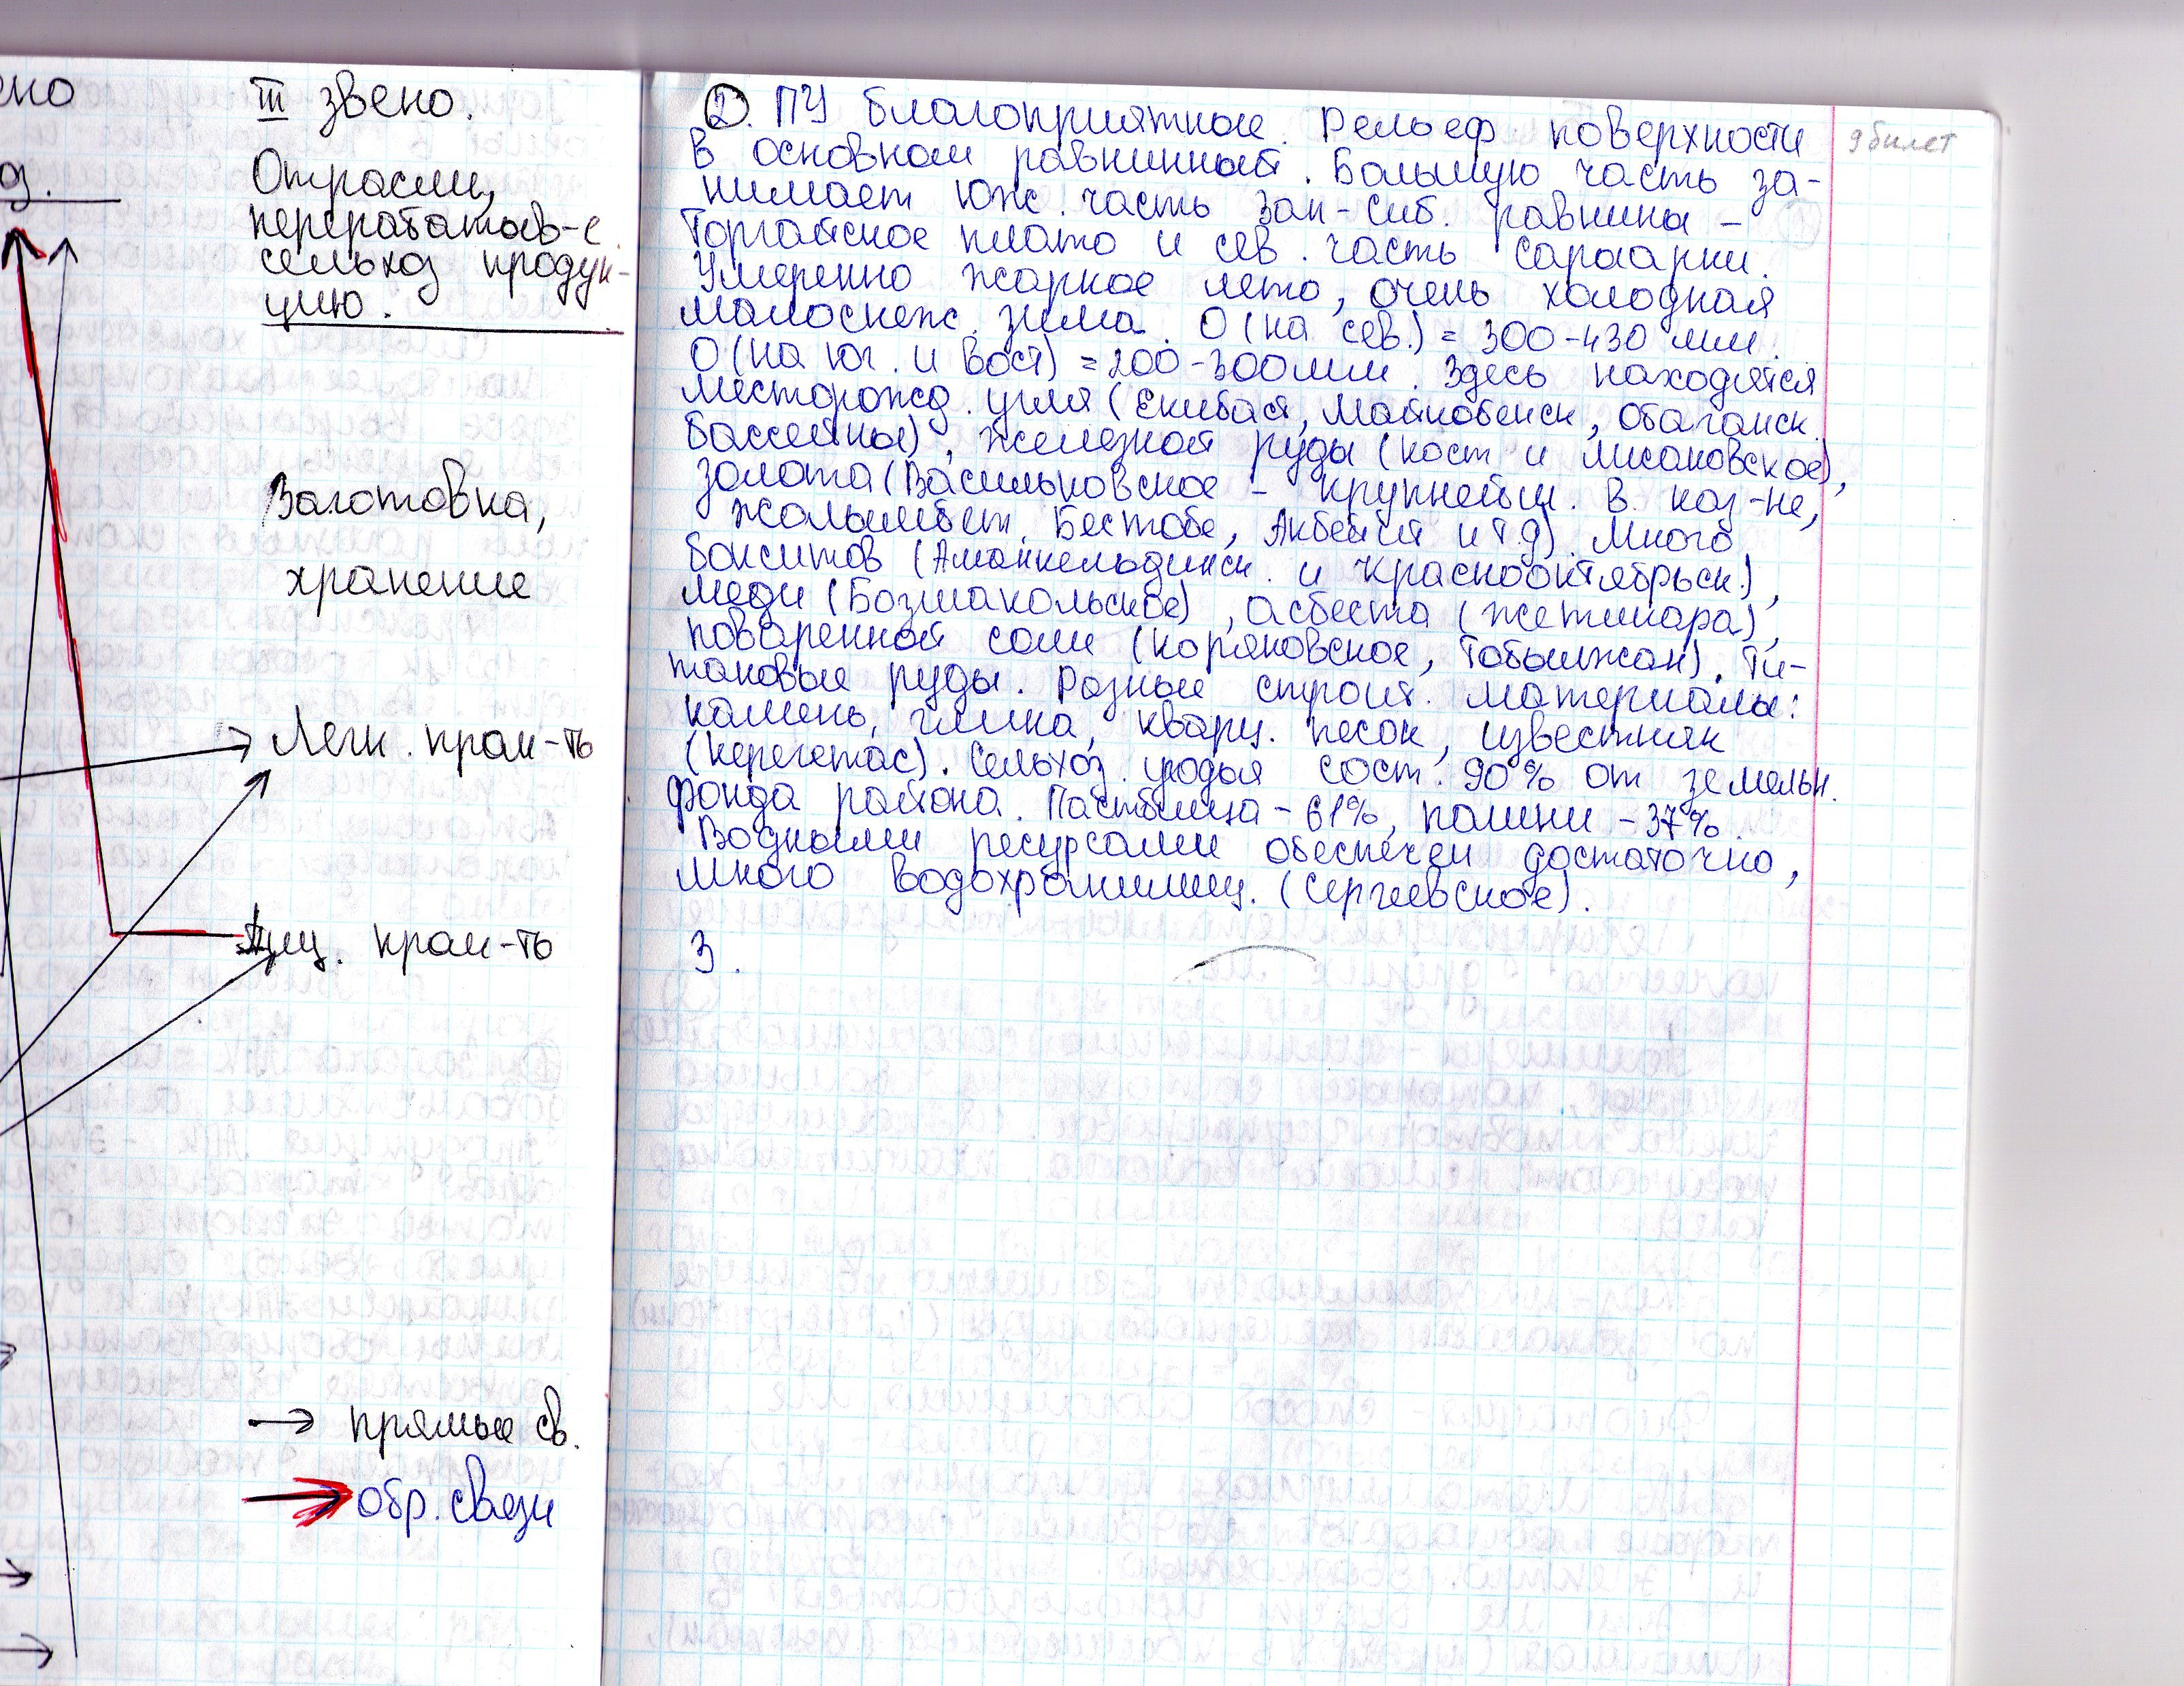 ено
III звено.
Отрасли,
перерабатыв-е
сельхоз продук-
цию.
Заготовка,
хранение
Легк. пром-ть
Пищ. пром-ть
прямые св.
обр. связи
9 билет
2. ПУ благоприятные. Рельеф поверхности
в основном равнинный. Большую часть за-
нимает юж. часть Зап-Сиб. равнины -
Торгайское плато и сев. часть Сарыарки.
Умеренно жаркое лето, очень холодная
малоснеж. зима. О (на сев.) = 300-430 мм.
О (на юг. и Вост) = 200-300 мм. Здесь находятся
месторожд. угля (Екибаст, Майкобенск, Обаганск.
бассейны), железной руды (Кост и Лисаковское),
золота (Васильковское - крупнейш. в каз-не,
Жолымбет, Бестобе, Акбеит и т.д). Много
бокситов (Аманкельдинск. и Краснооктябрьск.),
меди (Бозшакольское), асбеста (Жетикара),
поваренной соли (Коряковское, Тобылжан). Ти-
тановые руды. Разные строит. материалы:
камень, глина, кварц. песок, известняк
(Керегетас). Сельхоз. угодья сост. 90% от земельн.
фонда района. Пастбища - 61%, пашни - 37%.
Водными ресурсами обеспечен достаточно,
много водохранилищ. (Сергеевское).
3.